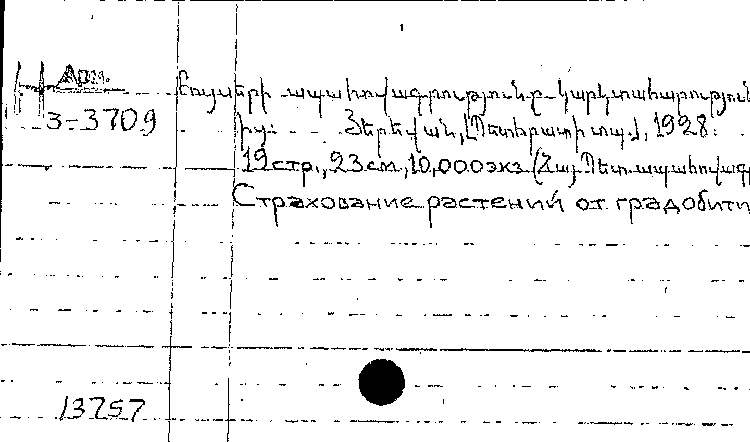 Арм.
3-3709
Բույսերի ապահովագրությունը կարկտահարություն
ից: Յերեվան, Պետհրատի տպ., 1928.
19 стр., 23 см, 10,000 экз. (Հայ. Պետապահովագր
Страхование растений от градобити
13757